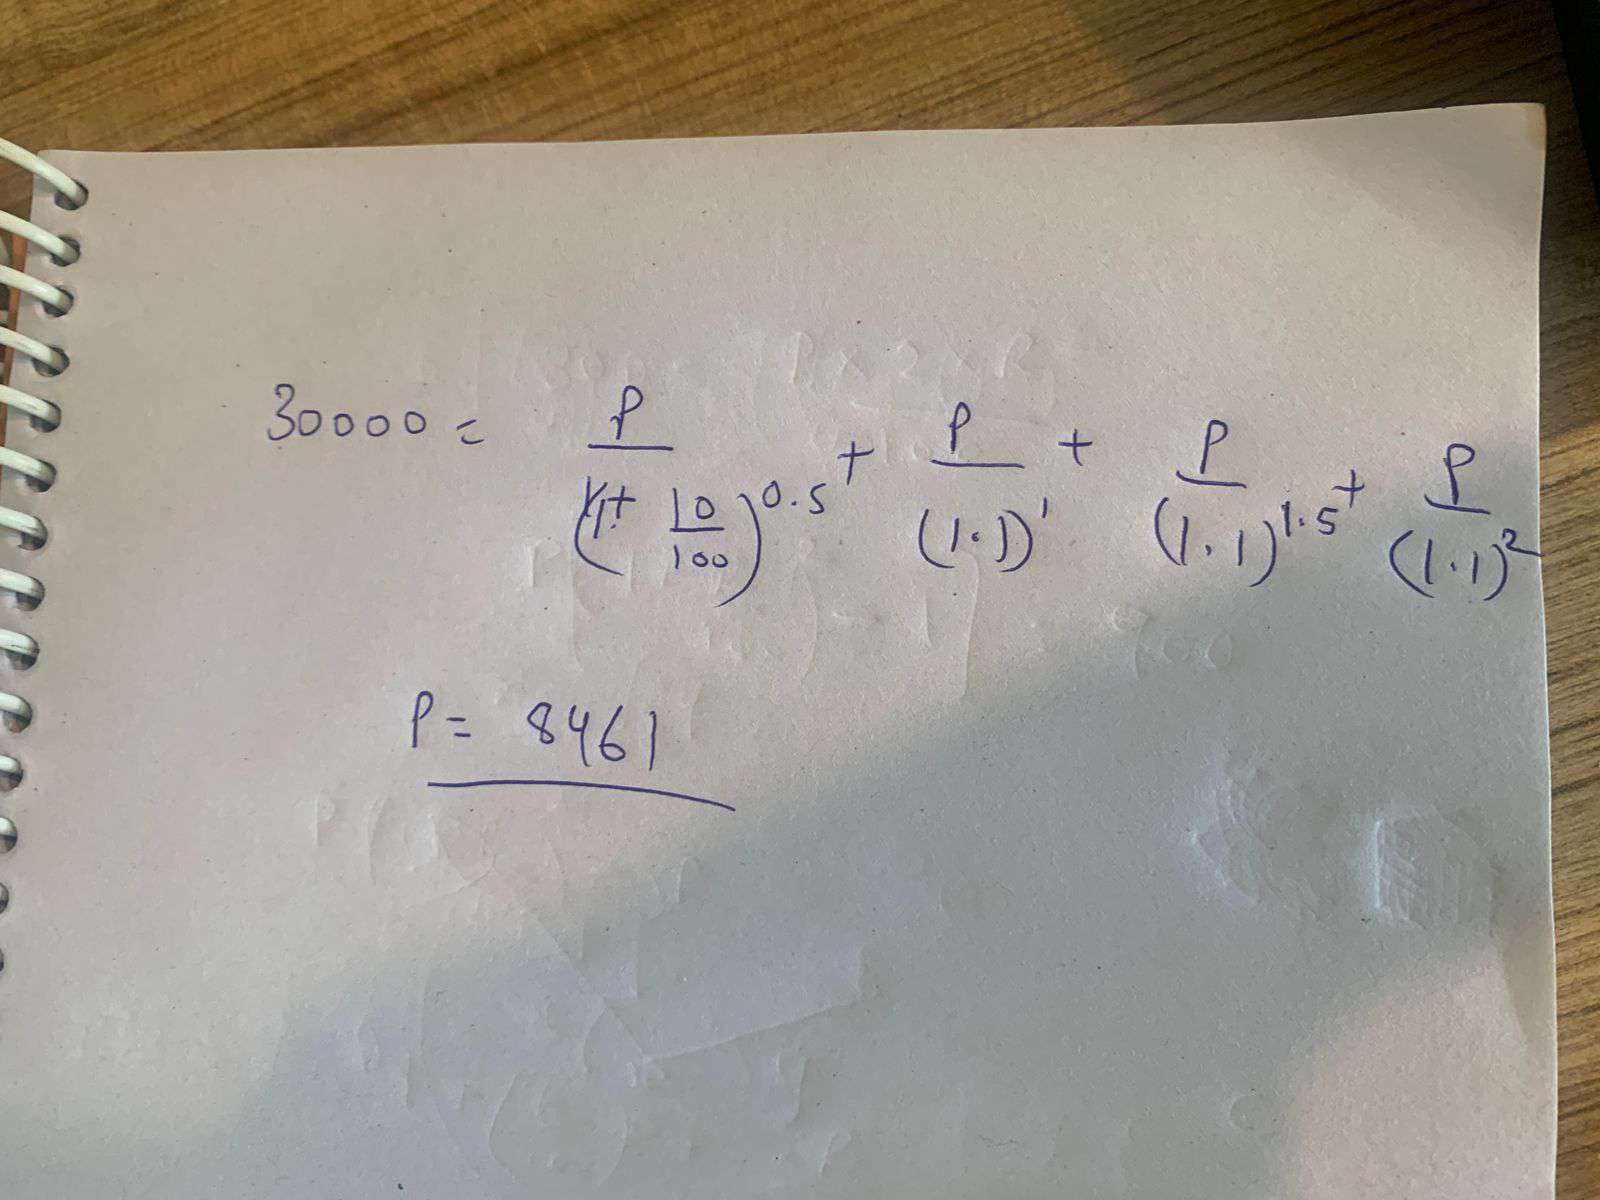 30000 = P/(1+ 10/100)^0.5 + P/(1.1)^1 + P/(1.1)^1.5 + P/(1.1)^2
P = 8461